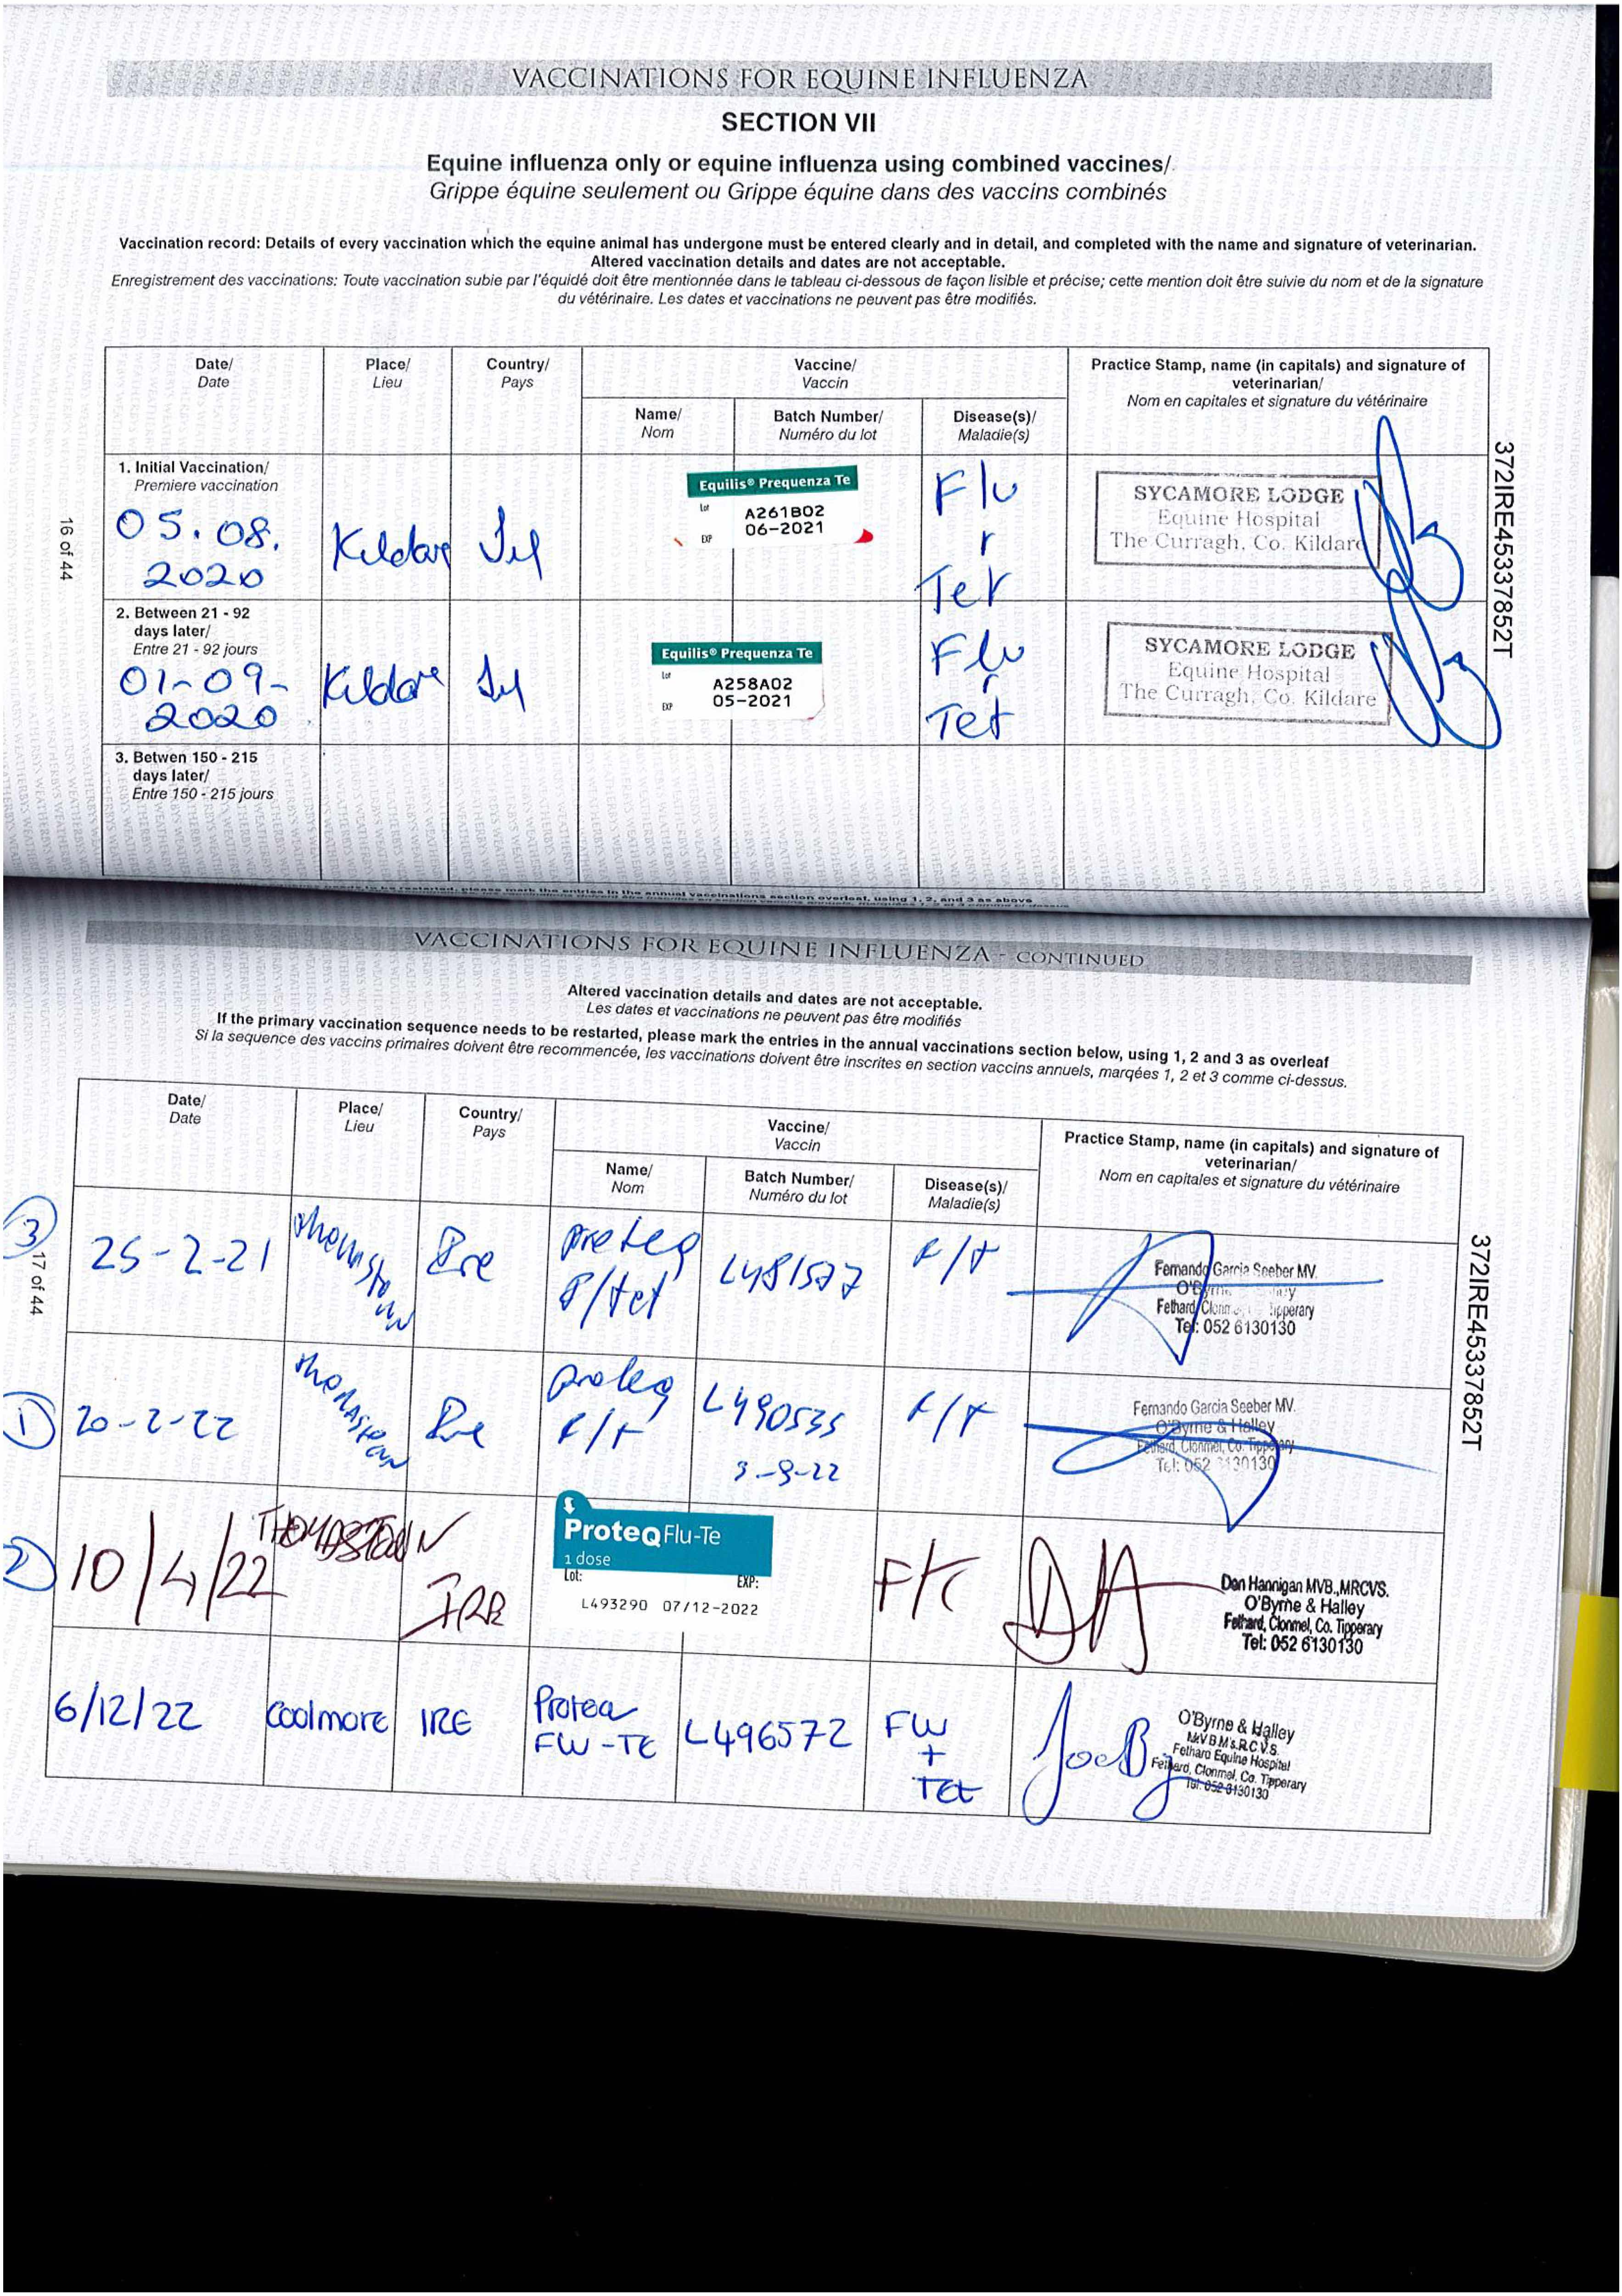 VACCINATIONS FOR EQUINE INFLUENZA
SECTION VII
Equine influenza only or equine influenza using combined vaccines/
Grippe équine seulement ou Grippe équine dans des vaccins combinés
Vaccination record: Details of every vaccination which the equine animal has undergone must be entered clearly and in detail, and completed with the name and signature of veterinarian.
Altered vaccination details and dates are not acceptable.
Enregistrement des vaccinations: Toute vaccination subie par l'équidé doit être mentionnée dans le tableau ci-dessous de façon lisible et précise; cette mention doit être suivie du nom et de la signature
du vétérinaire. Les dates et vaccinations ne peuvent pas être modifiés.
Date/
Date
Place/
Lieu
Country/
Pays
Vaccine/
Vaccin
Name/
Nom
Batch Number/
Numéro du lot
Disease(s)/
Maladie(s)
Practice Stamp, name (in capitals) and signature of
veterinarian/
Nom en capitales et signature du vétérinaire
1. Initial Vaccination/
Premiere vaccination
05.08.
2020
Kildare
Equilis® Prequenza Te
Lot
A261B02
06-2021
EXP
Flu
Tet
SYCAMORE LODGE
Equine Hospital
The Curragh, Co. Kildare
2. Between 21 - 92
days later/
Entre 21 - 92 jours
01-09-
2020
Kildare
Equilis® Prequenza Te
Lot
A258A02
05-2021
EXP
Flu
Tet
SYCAMORE LODGE
Equine Hospital
The Curragh, Co. Kildare
3. Betwen 150 - 215
days later/
Entre 150 - 215 jours
16 of 44
372IRE45337852T
annual vaccinations section overleaf, using 1, 2, and 3 as above
VACCINATIONS FOR EQUINE INFLUENZA - CONTINUED
Altered vaccination details and dates are not acceptable.
Les dates et vaccinations ne peuvent pas être modifiés
If the primary vaccination sequence needs to be restarted, please mark the entries in the annual vaccinations section below, using 1, 2 and 3 as overleaf
Si la sequence des vaccins primaires doivent être recommencée, les vaccinations doivent être inscrites en section vaccins annuels, marqées 1, 2 et 3 comme ci-dessus.
Date/
Date
Place/
Lieu
Country/
Pays
Vaccine/
Vaccin
Name/
Nom
Batch Number/
Numéro du lot
Disease(s)/
Maladie(s)
Practice Stamp, name (in capitals) and signature of
veterinarian/
Nom en capitales et signature du vétérinaire
3
25-2-21
Thomstown
Ire
proteq
F/tet
L481577
F/T
Fernando Garcia Seeber MV.
Fethard, Tipperary
Tel: 052 6130130
1
20-2-22
Ire
proteq
F/T
L490535
9-9-22
F/T
Fernando Garcia Seeber MV.
O'Byrne & Halley
Fethard, Clonmel, Co. Tipperary
Tel: 052 6130130
2
10/4/22
THOMASTOWN
IRE
ProteqFlu-Te
1 dose
Lot:
EXP:
L493290 07/12-2022
DH
Dan Hannigan MVB.,MRCVS.
O'Byrne & Halley
Fethard, Clonmel, Co. Tipperary
Tel: 052 6130130
6/12/22
Coolmore
IRE
Proteq
FLU-TE
L496572
FLU
+
TET
O'Byrne & Halley
M.V.B M's.R.C.V.S.
Fethard Equine Hospital
Fethard, Clonmel, Co. Tipperary
Tel: 052 6130130
17 of 44
372IRE45337852T